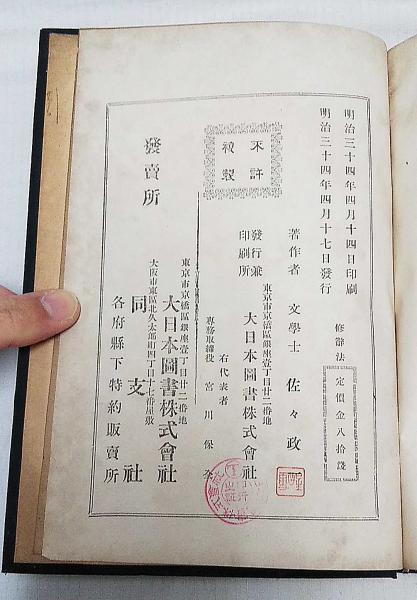 明治三十四年四月十四日印刷
明治三十四年四月十七日發行
修辭法
定價金八拾錢
著作者 文學士 佐々政
未許
複製
發行兼
印刷所
東京市京橋區銀座壹丁目廿二番地
大日本圖書株式會社
右代表者
専務取締役 宮川保全
發賣所
東京市京橋區銀座壹丁目廿二番地
大日本圖書株式會社
大阪市東區北久太郎町四丁目十七番屋敷
同支社
各府縣下特約販賣所